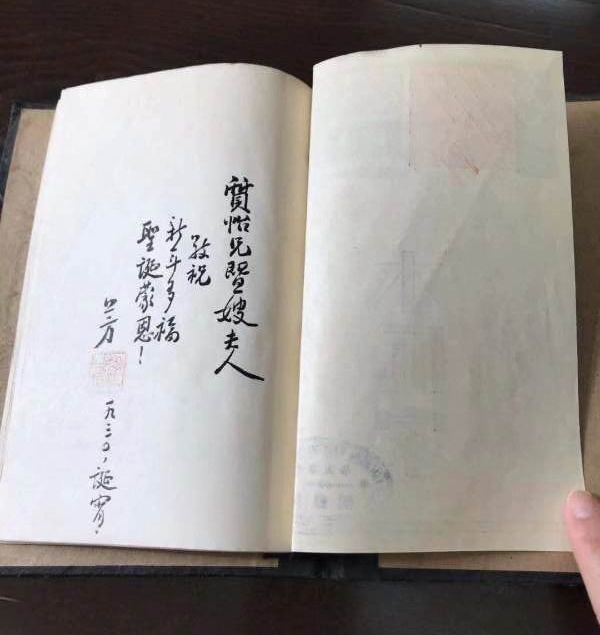 怡兄暨嫂夫人
敬祝
新年多福
聖誕蒙恩!
方
一九三〇,誕宵.